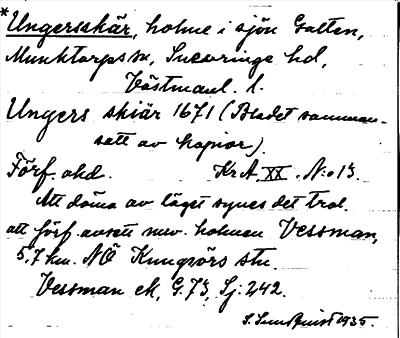 *Ungersskär, holme i sjön Galten,
Munktorps sn, Snevringe hd,
Västmanl. l.
Ungers skiär 1671 (Bladet samman-
satt av kopior).
Förf. okd. KrA XX. N:o 13.
Att döma av läget synes det trol.
att förf. avsett nuv. holmen Vessman,
5,7 km. NÖ Kungsörs stn.
Vessman ek, G. 73, Sj: 242.
S. Sundquist 1935.